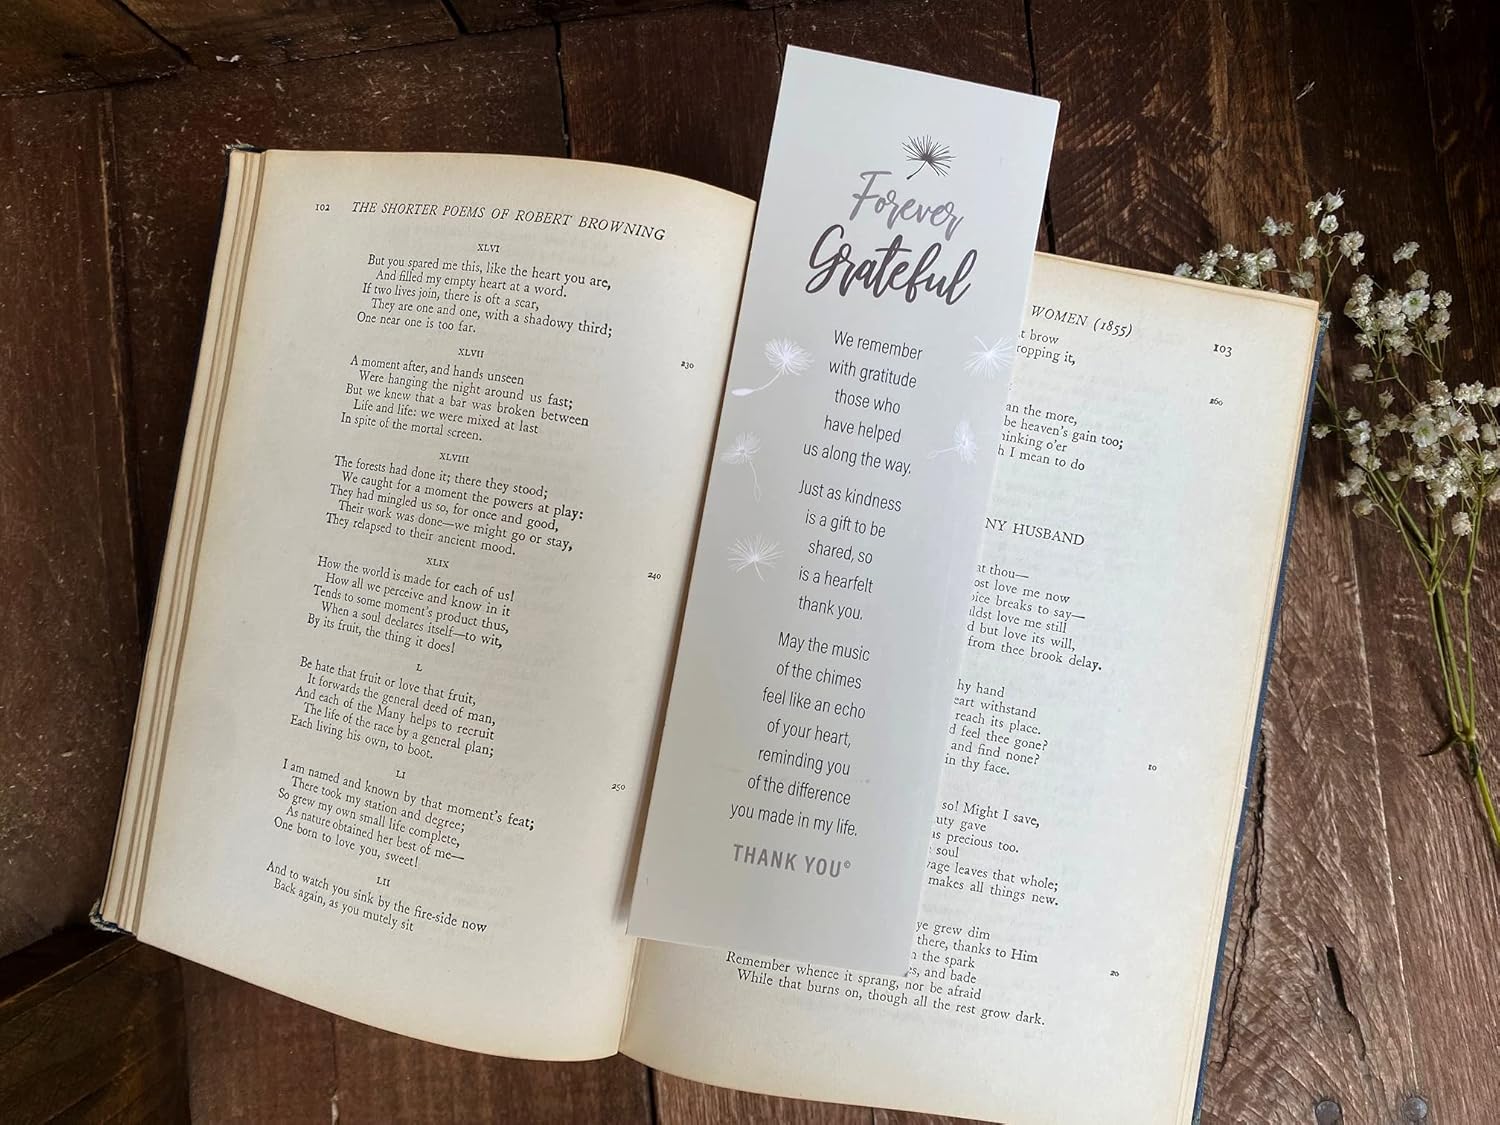 102 THE SHORTER POEMS OF ROBERT BROWNING
XLVI
But you spared me this, like the heart you are,
And filled my empty heart at a word.
If two lives join, there is oft a scar,
They are one and one, with a shadowy third;
One near one is too far.
XLVII
A moment after, and hands unseen
230
Were hanging the night around us fast;
But we knew that a bar was broken between
Life and life: we were mixed at last
In spite of the mortal screen.
XLVIII
The forests had done it; there they stood;
We caught for a moment the powers at play:
They had mingled us so, for once and good,
Their work was done—we might go or stay,
They relapsed to their ancient mood.
XLIX
How the world is made for each of us!
240
How all we perceive and know in it
Tends to some moment's product thus,
When a soul declares itself—to wit,
By its fruit, the thing it does!
L
Be hate that fruit or love that fruit,
It forwards the general deed of man,
And each of the Many helps to recruit
The life of the race by a general plan;
Each living his own, to boot.
LI
I am named and known by that moment's feat;
250
There took my station and degree;
So grew my own small life complete,
As nature obtained her best of me—
One born to love you, sweet!
LII
And to watch you sink by the fire-side now
Back again, as you mutely sit
Forever
Grateful
We remember
with gratitude
those who
have helped
us along the way.
Just as kindness
is a gift to be
shared, so
is a hearfelt
thank you.
May the music
of the chimes
feel like an echo
of your heart,
reminding you
of the difference
you made in my life.
THANK YOU©
WOMEN (1855) 103
brow
ropping it,
260
an the more,
be heaven's gain too;
hinking o'er
h I mean to do
NY HUSBAND
at thou—
ost love me now
oice breaks to say—
uldst love me still
d but love its will,
from thee brook delay.
hy hand
eart withstand
reach its place.
d feel thee gone?
and find none?
10
in thy face.
so! Might I save,
uty gave
as precious too.
soul
vage leaves that whole;
makes all things new.
ye grew dim
there, thanks to Him
n the spark
20
es, and bade
Remember whence it sprang, nor be afraid
While that burns on, though all the rest grow dark.